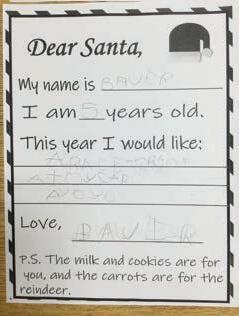 Dear Santa,
My name is BAUER
I am 5 years old.
This year I would like:
Love, BAUER
P.S. The milk and cookies are for
you, and the carrots are for the
reindeer.